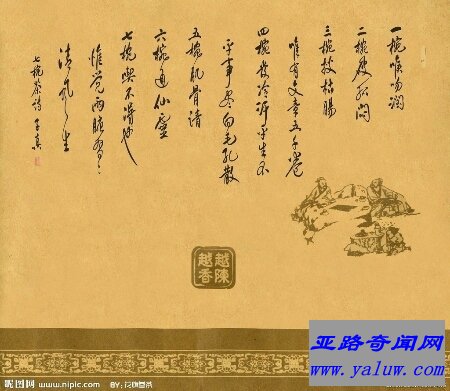 一椀喉吻润
二椀破孤闷
三椀搜枯肠
唯有文章五千卷
四椀发轻汗平生不
平事尽向毛孔散
五椀肌骨清
六椀通仙靈
七椀喫不得也
惟觉两腋習習
清风生
七椀茶诗
越陳
越香
昵图网 www.nipic.com BY:
亚路奇闻网
www.yaluw.com